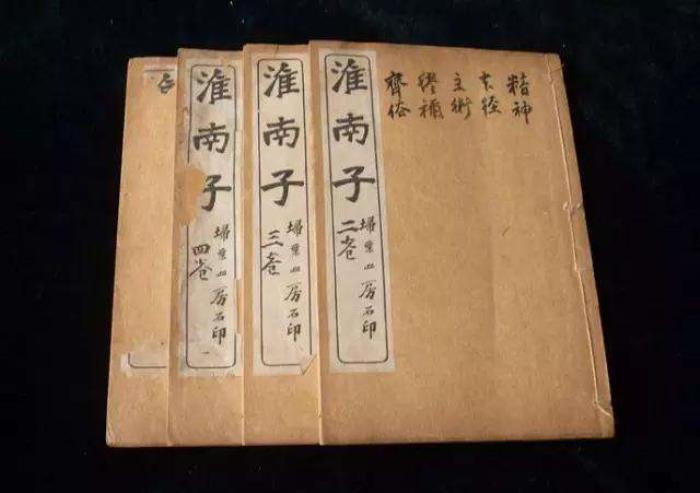 精神
本經
主術
繆稱
齊俗
淮南子
二卷
埽葉山房石印
淮南子
三卷
埽葉山房石印
淮南子
四卷
埽葉山房石印